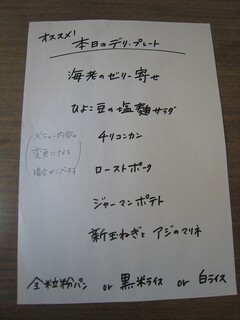 オススメ!
本日のデリ.プレート
海老のゼリー寄せ
ひよこ豆の塩麹サラダ
チリコンカン
(メニュー内容は
変更になる
場合がございます)
ローストポーク
ジャーマンポテト
新玉ねぎと アジのマリネ
全粒粉パン or 黒米ライス or 白ライス